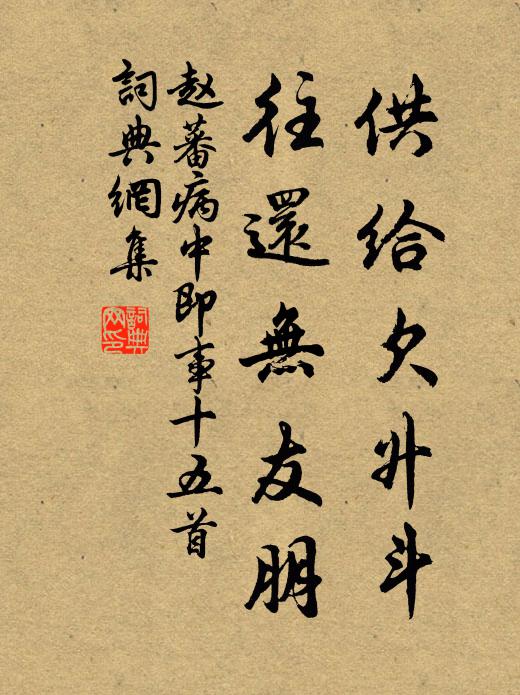 供給欠升斗
往還無友朋
赵蕃病中即事十五首
詞典網集
詞典
网印